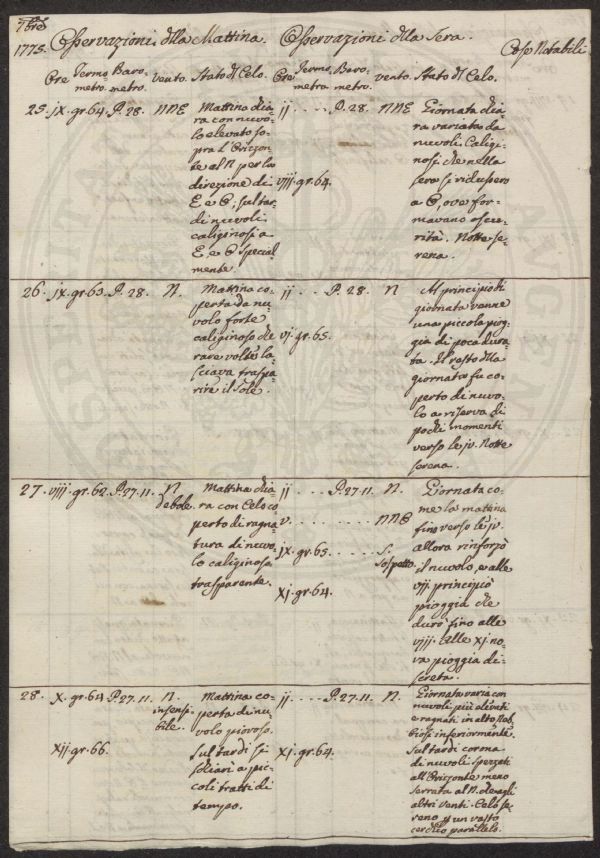 7bre
1775. Osservazioni dlla Mattina. Osservazioni dlla Sera. Cose Notabili
Ore Termo= Baro= vento. Stato dl Celo. Ore Termo= Baro= vento. Stato dl Celo.
metro. metro. metro. metro.
25. jx. gr. 64. P. 28. NNE Mattina chia=
ra con nuvo=
lo elevato so=
pra l'Orizon=
te al N per la
direzione di
E e O; sul tar=
di nuvoli
caliginosi a
E, e O special=
mente.
ij .... P. 28. NNE Giornata chia=
ra variata da
nuvoli Caligi=
nosi che nella
viij. gr. 64. sera si ridussero
a O, ove for=
mavano oscu=
rità. Notte se=
rena.
26. jx. gr. 63. P. 28. N. Mattina co=
perta da nu=
volo forte
caliginoso che
rare volte la=
sciava traspa=
rire il sole.
ij .. P. 28. N Al principio di
giornata venne
una piccola piog=
vj. gr. 65. gia di poca dura=
ta. Il resto dlla
giornata fu co=
perto di nuvo=
lo a riserva di
pochi momenti
verso le jv. Notte
serena.
27. viij. gr. 62. P. 27. 11. N debole. Mattina chia=
ra con Celo co=
perto di ragna=
tura di nuvo=
lo caliginoso
trasparente.
ij .... P. 27. 11. N. Giornata co=
me la mattina
v. ........ NNE fino verso le jv.
allora rinforzò
jx. gr. 65. ...... S. sospetto. il nuvolo, e alle
vij principiò
xj. gr. 64. pioggia che
durò fino alle
viij. Alle xj no=
va pioggia di=
screta.
28. x. gr. 64 P. 27. 11. N. insensi=
bile. Mattina co=
perta di nu=
volo piovoso.
xij. gr. 66. Sul tardi si
schiarì a pic=
coli tratti di
tempo.
ij .... P. 27. 11. N. Giornata varia con
nuvoli più elevati
e ragnati in alto, Neb=
biosi inferiormente.
xj. gr. 64. Sul tardi corona
di nuvoli spezzati
all'Orizzonte meno
serrata al N. che agli
altri venti. Celo se=
reno p un vasto
cerchio parallelo.